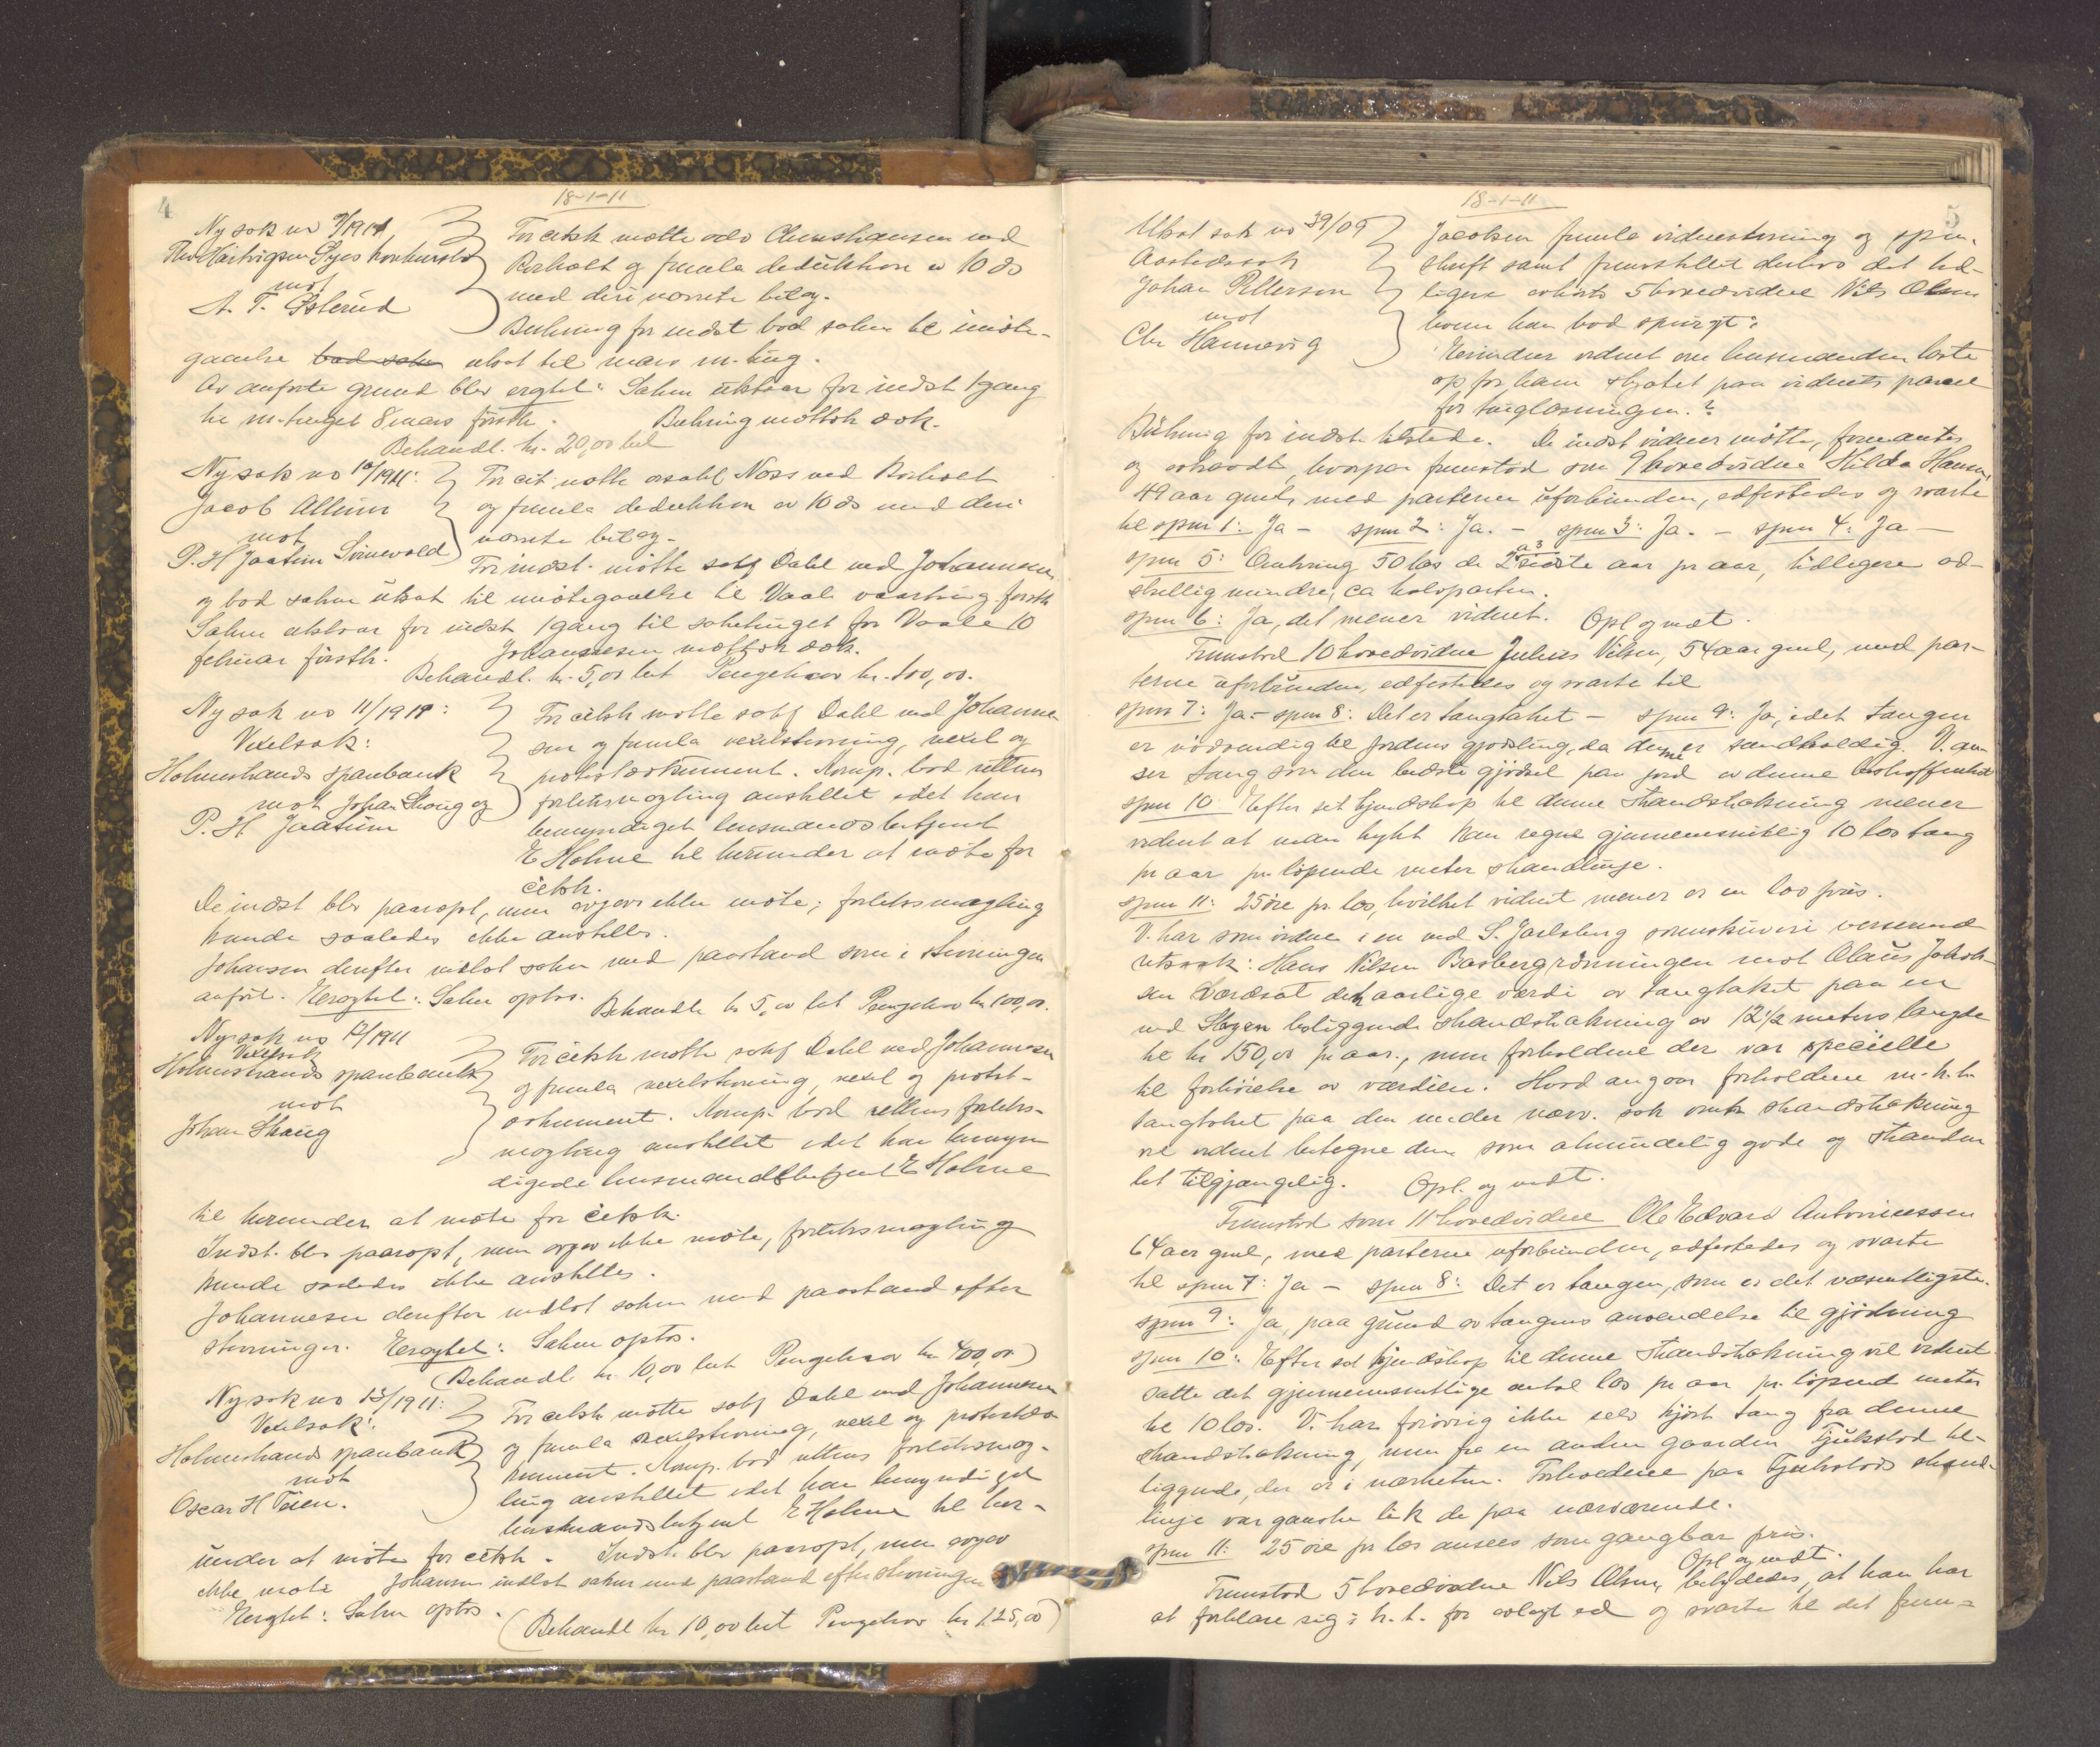 4
18-1-11
Ny sak no 9/1911
Thv Hartvigsen Syes konkursbo
mot
A. T. Østerud
For citsk møtte adv Clewshausen ved
Borholt og fremla deduktion av 10 ds
med deri nævnte bilag.
Buhring for indst bad saken til imøte-
gaaelse bad saken utsat til mars m-ting.
Av anførte grund blev eragtet: Saken utstaar for indst 1 gang
til m-tinget 8 mars førstk. Buhring mottok dok.
Behandl. kr. 20,00 bet
Ny sak no 10/1911:
Jacob Allum
mot
P. H Jaatun Sørnevold
For cit møtte orsakf Næss ved Borholt
og fremla deduktion av 10 ds med deri
nævnte bilag.
For indst. møtte sakf Dahl ved Johannesen
og bad saken utsat til imøtegaaelse til Vaale vaarting førstk
Saken utstaar for indst 1 gang til saketinget for Vaale 10
februar førstk. Johannesen mottok dok.
Behandl. kr. 5,00 bet Pengekrav kr. 100,00.
Ny sak no 11/1911:
Vexelsak:
Holmestrands sparebank
mot Johan Skaug og
P. H Jaatun
For citsk møtte sakf Dahl ved Johanne-
sen og fremla vexelstevning, vexel og
protestdokument. Komp. bad rettens
forliksmægling anstillet idet han
bemyndiget lensmandsbetjent
E Holme til herunder at møte for
citsk.
De indst blev paaropt, men avgav ikke møte; forliksmægling
kunde saaledes ikke anstilles.
Johansen derefter indlot saken med paastand som i stevningen
anført. Eragtet: Saken optas. Behandl kr 5,00 bet Pengekrav kr 100,00.
Ny sak no 12/1911
Vexelsak
Holmestrands sparebank
mot
Johan Skaug
For citsk møtte sakf Dahl ved Johannesen
og fremla vexelstevning, vexel og protest-
dokument. Komp. bad rettens forliks-
mægling anstillet idet han bemyn-
digede lensmandsbetjent E Holme
til herunder at møte for citsk.
Indst. blev paaropt, men avgav ikke møte, forliksmægling
kunde saaledes ikke anstilles.
Johannesen derefter indlot saken med paastand efter
stevningen. Eragtet: Saken optas.
(Behandl. kr. 10,00 bet Pengekrav kr 400,00)
Ny sak no 13/1911:
Vexelsak:
Holmestrands sparebank
mot
Oscar H Føien.
For citsk møtte sakf Dahl ved Johannesen
og fremla vexelstevning, vexel og protestdo-
kument. Komp. bad rettens forliksmæg-
ling anstillet idet han bemyndiget
lensmandsbetjent E Holme til her-
under at møte for citsk. Indst. blev paaropt, men avgav
ikke møte Johansen indlot saken med paastand efter stevningen
Eragtet: Saken optas.
(Behandl kr 10,00 bet Pengekrav kr 125,00)
5
18-1-11
Utsat sak no 39/09
Aastedssak
Johan Pettersen
mot
Chr Hannevig
Jacobsen fremla vidnestevning og spm.
skrift samt fremstillet derhos det tid-
ligere avhørte 5 hovedvidne Nils Olsen
hvem han bad spurgt:
Erindrer vidnet om husmanden løste
op for ham skjøtet paa vidnets parcel
for tinglæsningen.?
Buhring for indst. tilstede. De indst vidner møtte, formantes
og avhørdt, hvorpaa fremstod som 9 hovedvidne Hilda Hansen,
49 aar gml, med parterne uforbunden, edfestedes og svarte
til spm 1: Ja - spm 2: Ja. - spm 3: Ja. - spm 4: Ja -
spm 5: Omkring 50 las de 2 a 3 sidste aar pr aar, tidligere ad-
skillig mindre, ca halvparten.
spm 6: Ja, det mener vidnet. Opl og vedt.
Fremstod 10 hovedvidne Julius Nilsen, 54 aar gml, med par-
terne uforbunden, edfestedes og svarte til
spm 7: Ja - spm 8: Det er tangtaket - spm 9: Ja, idet tangen
er nødvendig til jordens gjødsling, da denne er sandholdig. V. an-
ser tang som den bedste gjødsel paa jord av denne beskaffenhet
spm 10: Efter sit kjendskap til denne strandstrækning mener
vidnet at man trykt kan regne gjennemsnitlig 10 las tang
pr aar pr løpende meter strandlinje.
spm 11: 25 øre pr las, hvilket vidnet mener er en lav pris.
V. har som vidne i en ved S. Jarlsberg sorenskriveri verserende
retssak: Hans Nilsen Basbergrønningen mot Olaus Jakob-
sen værdsat det aarlige værdi av tangtaket paa en
ved Skøyen beliggende strandstrækning av 12 1/2 meters længde
til kr 150,00 pr aar., men forholdene der var specielle
til forhøielse av værdien. Hvad angaar forholdene m.h.t.
tangtaket paa den under nærv. sak omh strandstrækning
vil vidnet betegne dem som almindelig gode og stranden
let tilgjængelig. Opl. og vedt.
Fremstod som 11 hovedvidne Ole Edvard Antoniussen
64 aar gml, med parterne uforbunden, edfestedes og svarte
til spm 7: Ja - spm 8: Det er tangen, som er det væsentligste.
spm 9: Ja, paa grund av tangens anvendelse til gjødning
spm 10: Efter sit kjendskap til denne strandstrækning vil vidnet
sætte det gjennemsnitlige antal las pr aar pr. løpende meter
til 10 las. V. har forøvrig ikke selv kjørt tang fra denne
strandstrækning, men fra en anden gaarden Fjukstad til-
liggende, der er i nærheten. Forholdene paa Fjukstads strand-
linje var ganske lik de paa nærværende.
spm 11: 25 øre pr las ansees som gangbar pris.
Opl og vedt.
Fremstod 5 hovedvidne Nils Olsen, betydedes, at han har
at forklare sig i h. t. før avlagt ed og svarte til det frem-